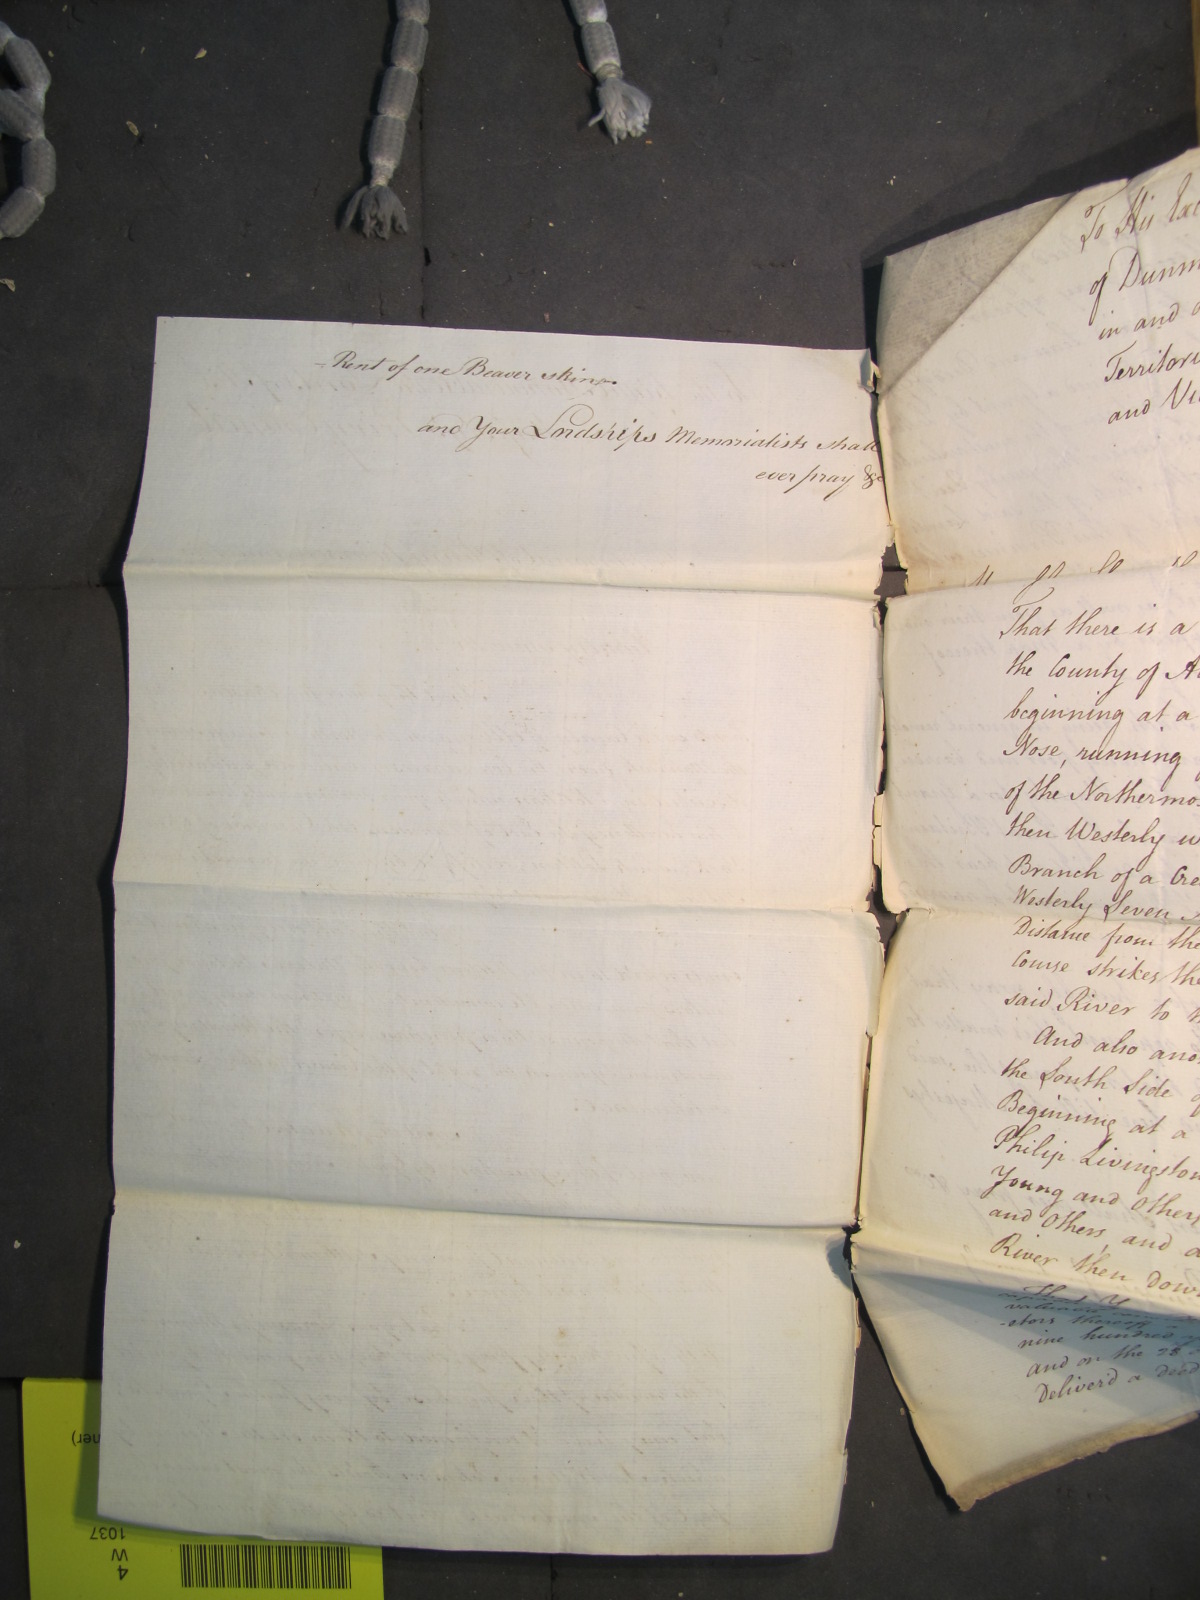 -Rent of one Beaver skin
and Your Lordships Memorialists shall
ever pray &c
To His Exc
of Dunm
in and o
Territori
and Vi
That there is a
the County of A
beginning at a
Nose, running
of the Northermos
then Westerly w
Branch of a Cre
Westerly Seven
Distance from the
Course strikes the
said River to
And also ano
the South Side o
Beginning at a
Philip Livingston
Young and Others
and Others, and a
River then Down
That Y
-etors thereof
nine hundred
and on the 28
Deliver'd a Deed
ner)
1037
W
4